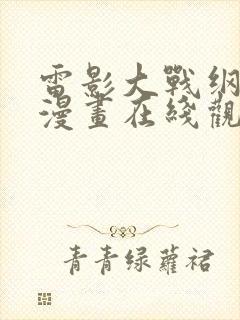 雷影大戰纲
漫畫在綫觀
青青绿蘿裙